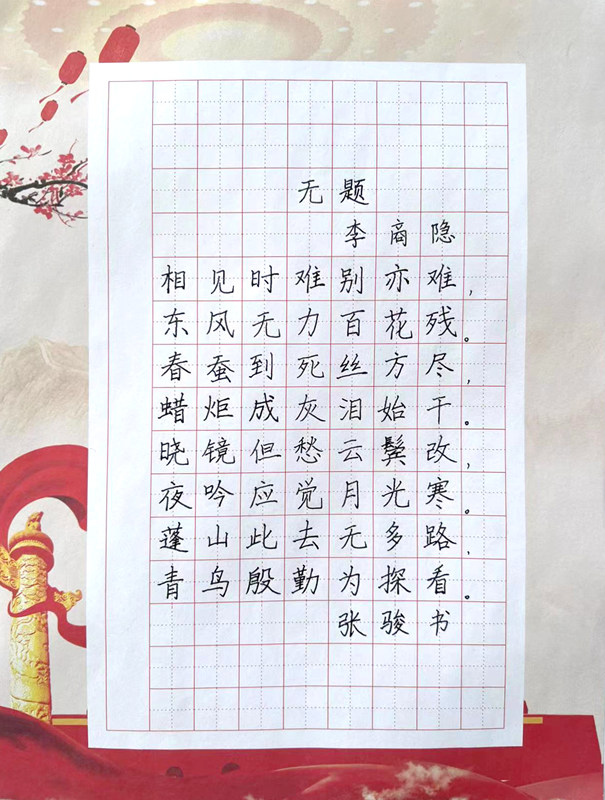 无题
李商隐
相见时难别亦难，
东风无力百花残。
春蚕到死丝方尽，
蜡炬成灰泪始干。
晓镜但愁云鬓改，
夜吟应觉月光寒。
蓬山此去无多路，
青鸟殷勤为探看。
张骏书